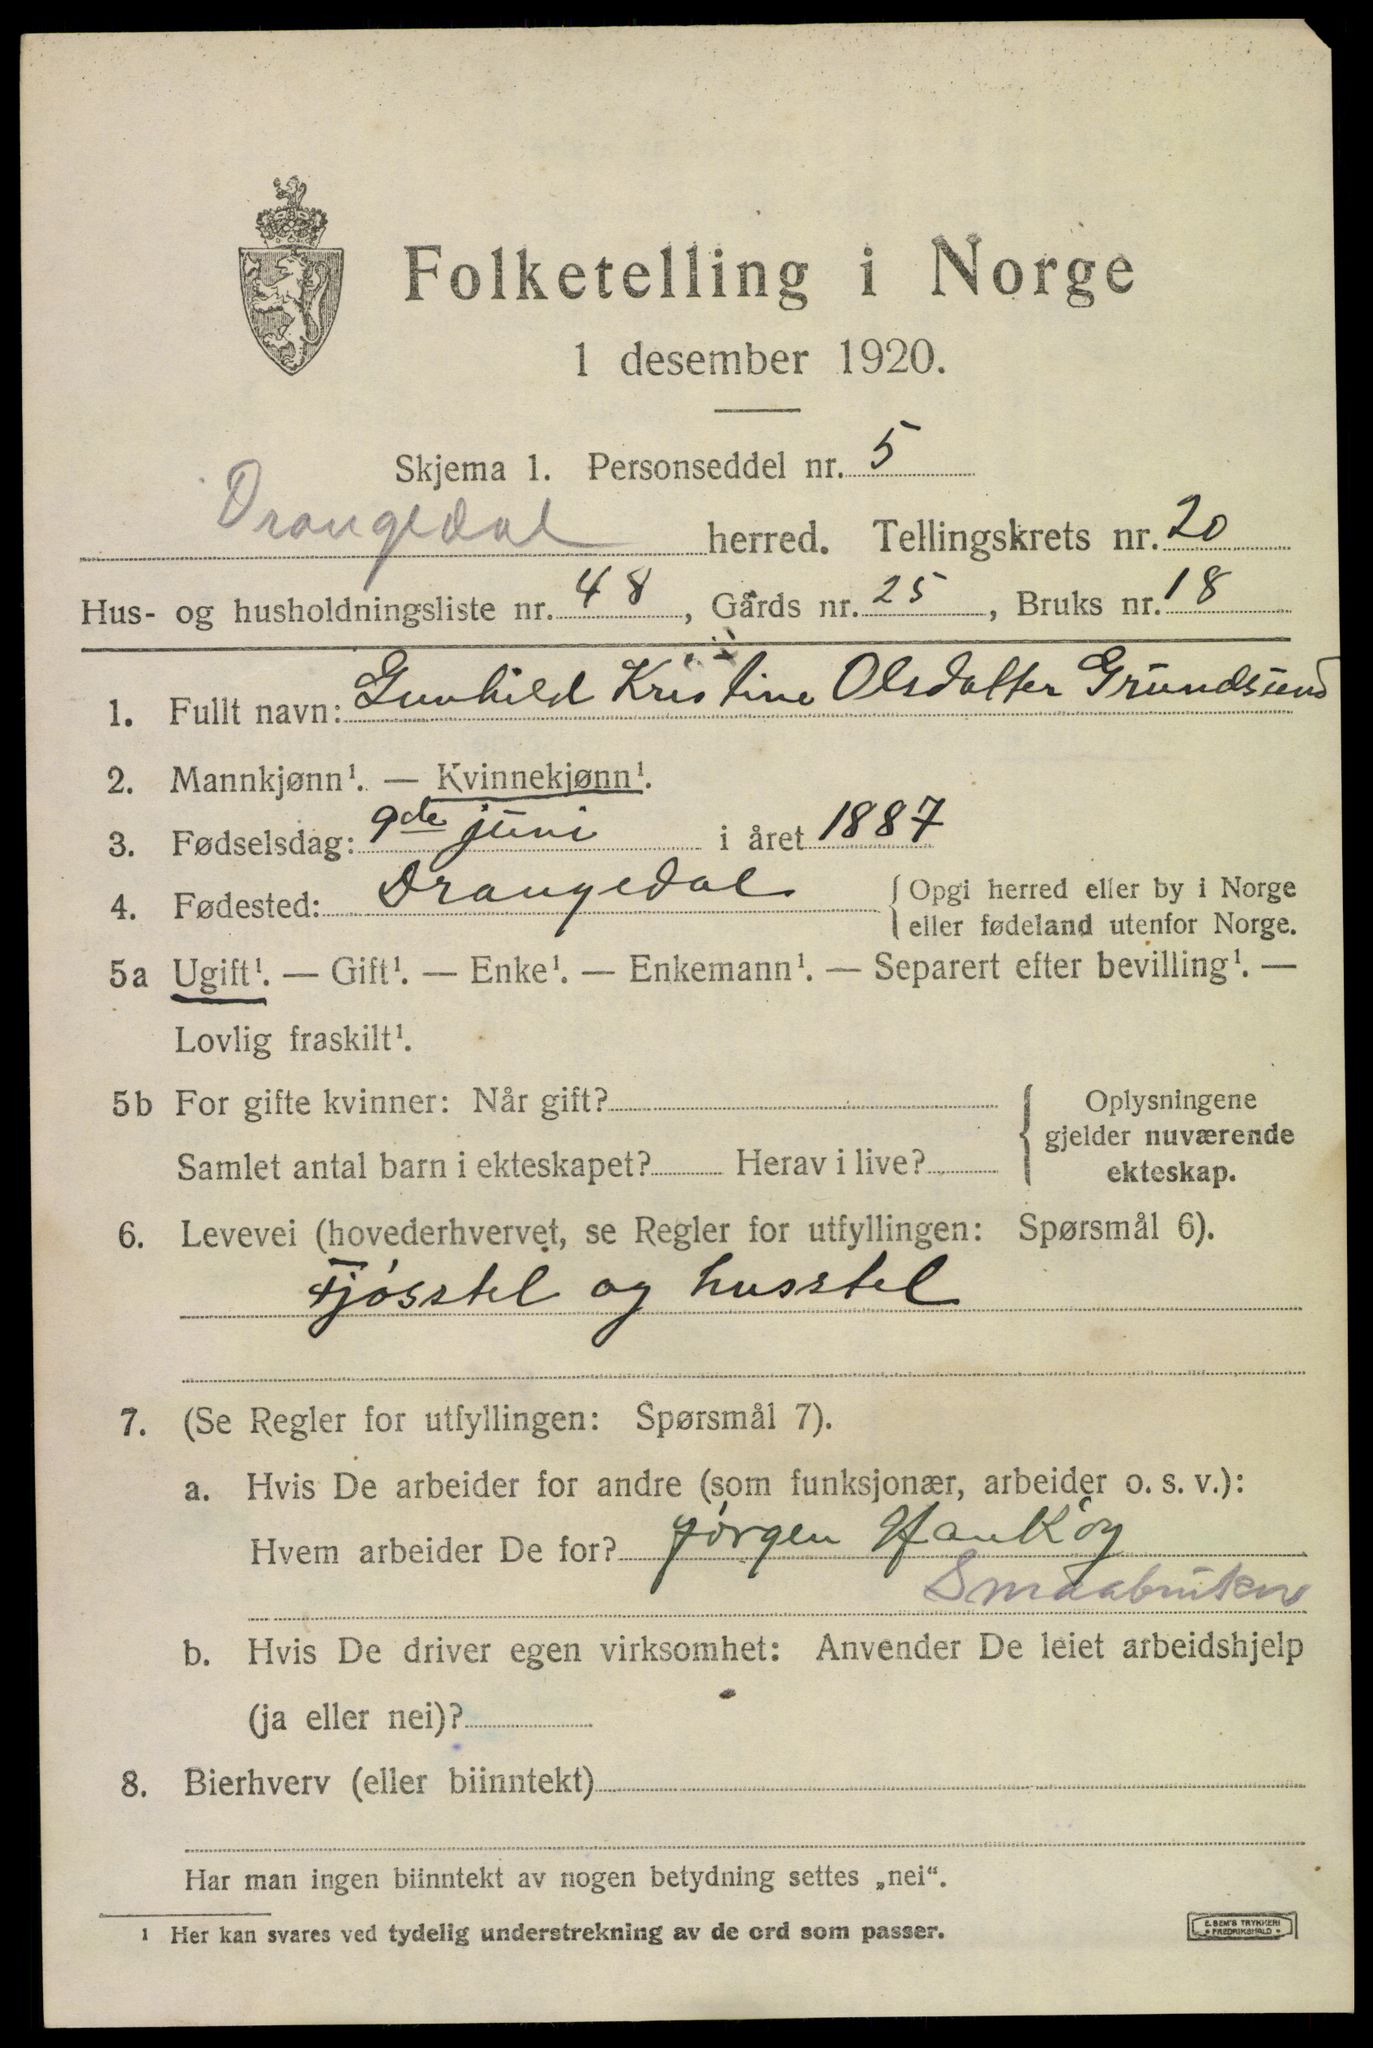 Folketelling i Norge
1 desember 1920.
Skjema 1. Personseddel nr. 5
Drangedal herred. Tellingskrets nr. 20
Hus- og husholdningsliste nr. 48, Gårds nr. 25, Bruks nr. 18
1. Fullt navn: Gunhild Kristine Olsdatter Grundsund
2. Mannkjønn¹. — Kvinnekjønn¹.
3. Fødselsdag: 9de juni i året 1887
4. Fødested: Drangedal {Opgi herred eller by i Norge
eller fødeland utenfor Norge.
5a Ugift¹. — Gift¹. — Enke¹. — Enkemann¹. — Separert efter bevilling¹. —
Lovlig fraskilt¹.
5b For gifte kvinner: Når gift?
Samlet antal barn i ekteskapet? Herav i live?
Oplysningene
gjelder nuværende
ekteskap.
6. Levevei (hovederhvervet, se Regler for utfyllingen: Spørsmål 6).
Fjøsstel og husstel
7. (Se Regler for utfyllingen: Spørsmål 7).
a. Hvis De arbeider for andre (som funksjonær, arbeider o. s. v.):
Hvem arbeider De for? Jørgen
Smaabruker
b. Hvis De driver egen virksomhet: Anvender De leiet arbeidshjelp
(ja eller nei)?
8. Bierhverv (eller biinntekt)
Har man ingen biinntekt av nogen betydning settes „nei“.
¹ Her kan svares ved tydelig understrekning av de ord som passer.
E. SEM'S TRYKKERI
FREDRIKSHALD